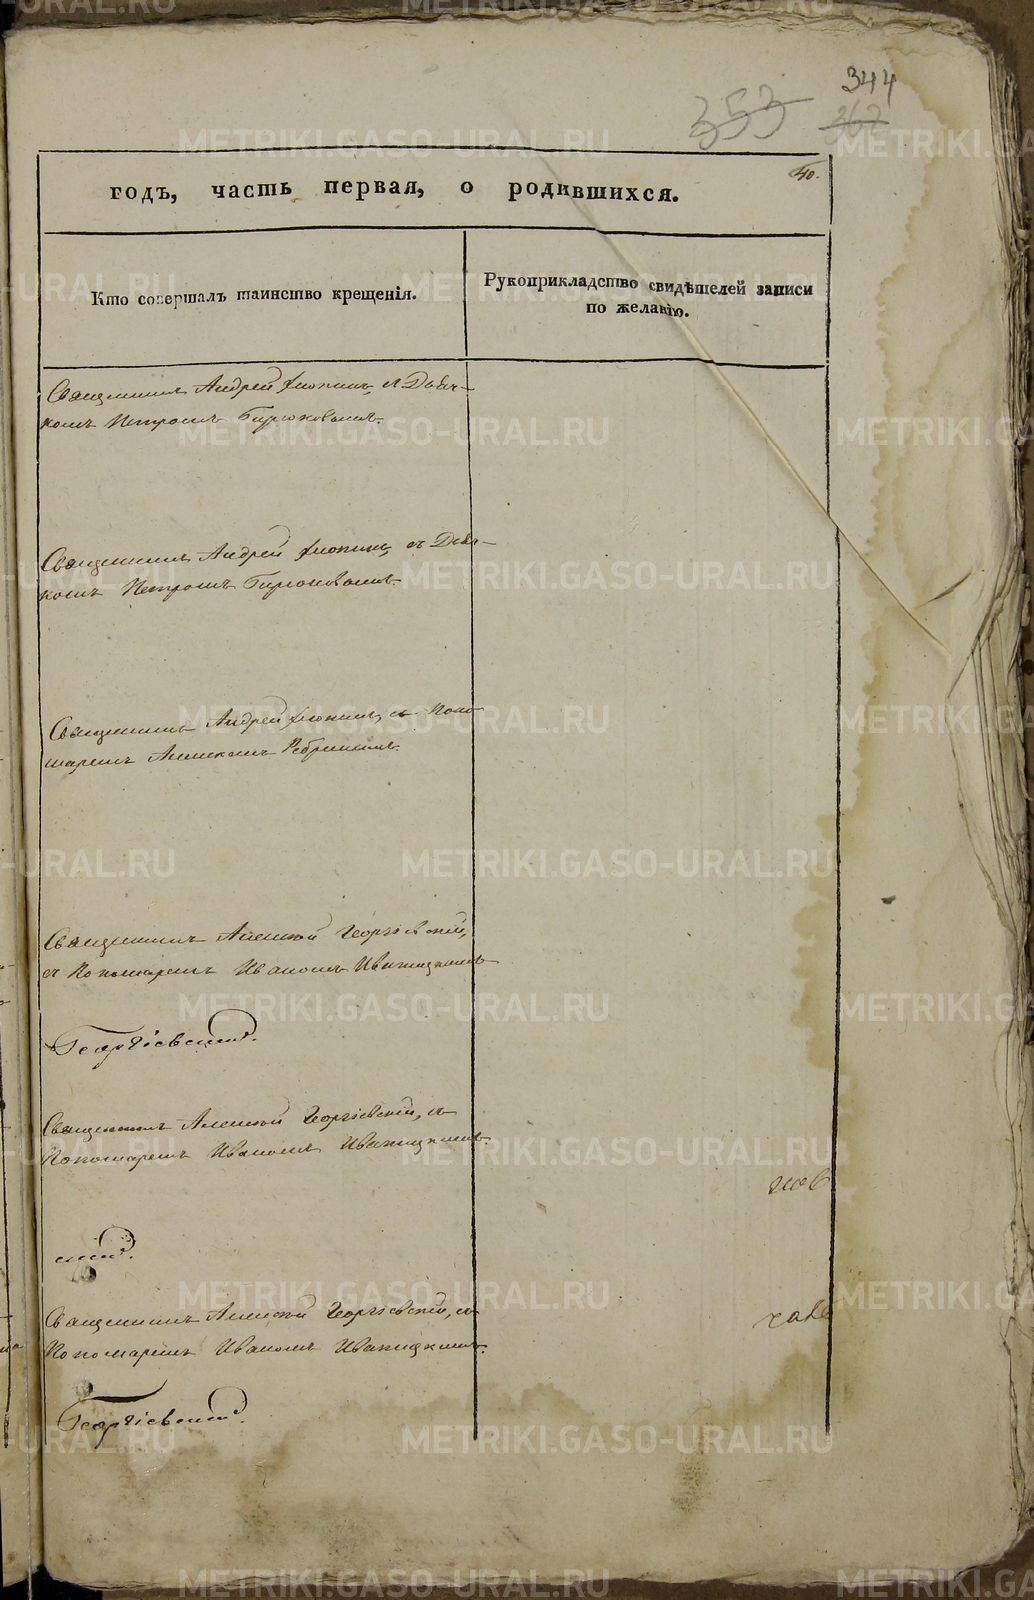 344
353
267
40.
годъ, часть первая, о родившихся.
Кто совершалъ таинство крещенія.
Рукоприкладство свидѣтелей записи
по желанію.
Священникъ Андрей съ Дьяч-
комъ Петромъ Бирюковымъ.
Священникъ Андрей съ Дьяч-
комъ Петромъ Бирюковымъ.
Священникъ Андрей съ Поно-
маремъ
Священникъ Алексѣй Георгіевскій,
съ Пономаремъ Иваномъ Иваницкимъ
Георгіевскій.
Священникъ Алексѣй Георгіевскій, съ
Пономаремъ Иваномъ Иваницкимъ.
скій.
Священникъ Алексѣй Георгіевскій, съ
Пономаремъ Иваномъ Иваницкимъ.
Георгіевскій.
METRIKI.GASO-URAL.RU